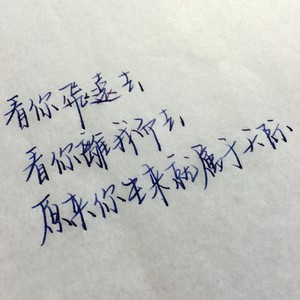 看你飛遠去
看你離我而去
原来你生来就属于天际